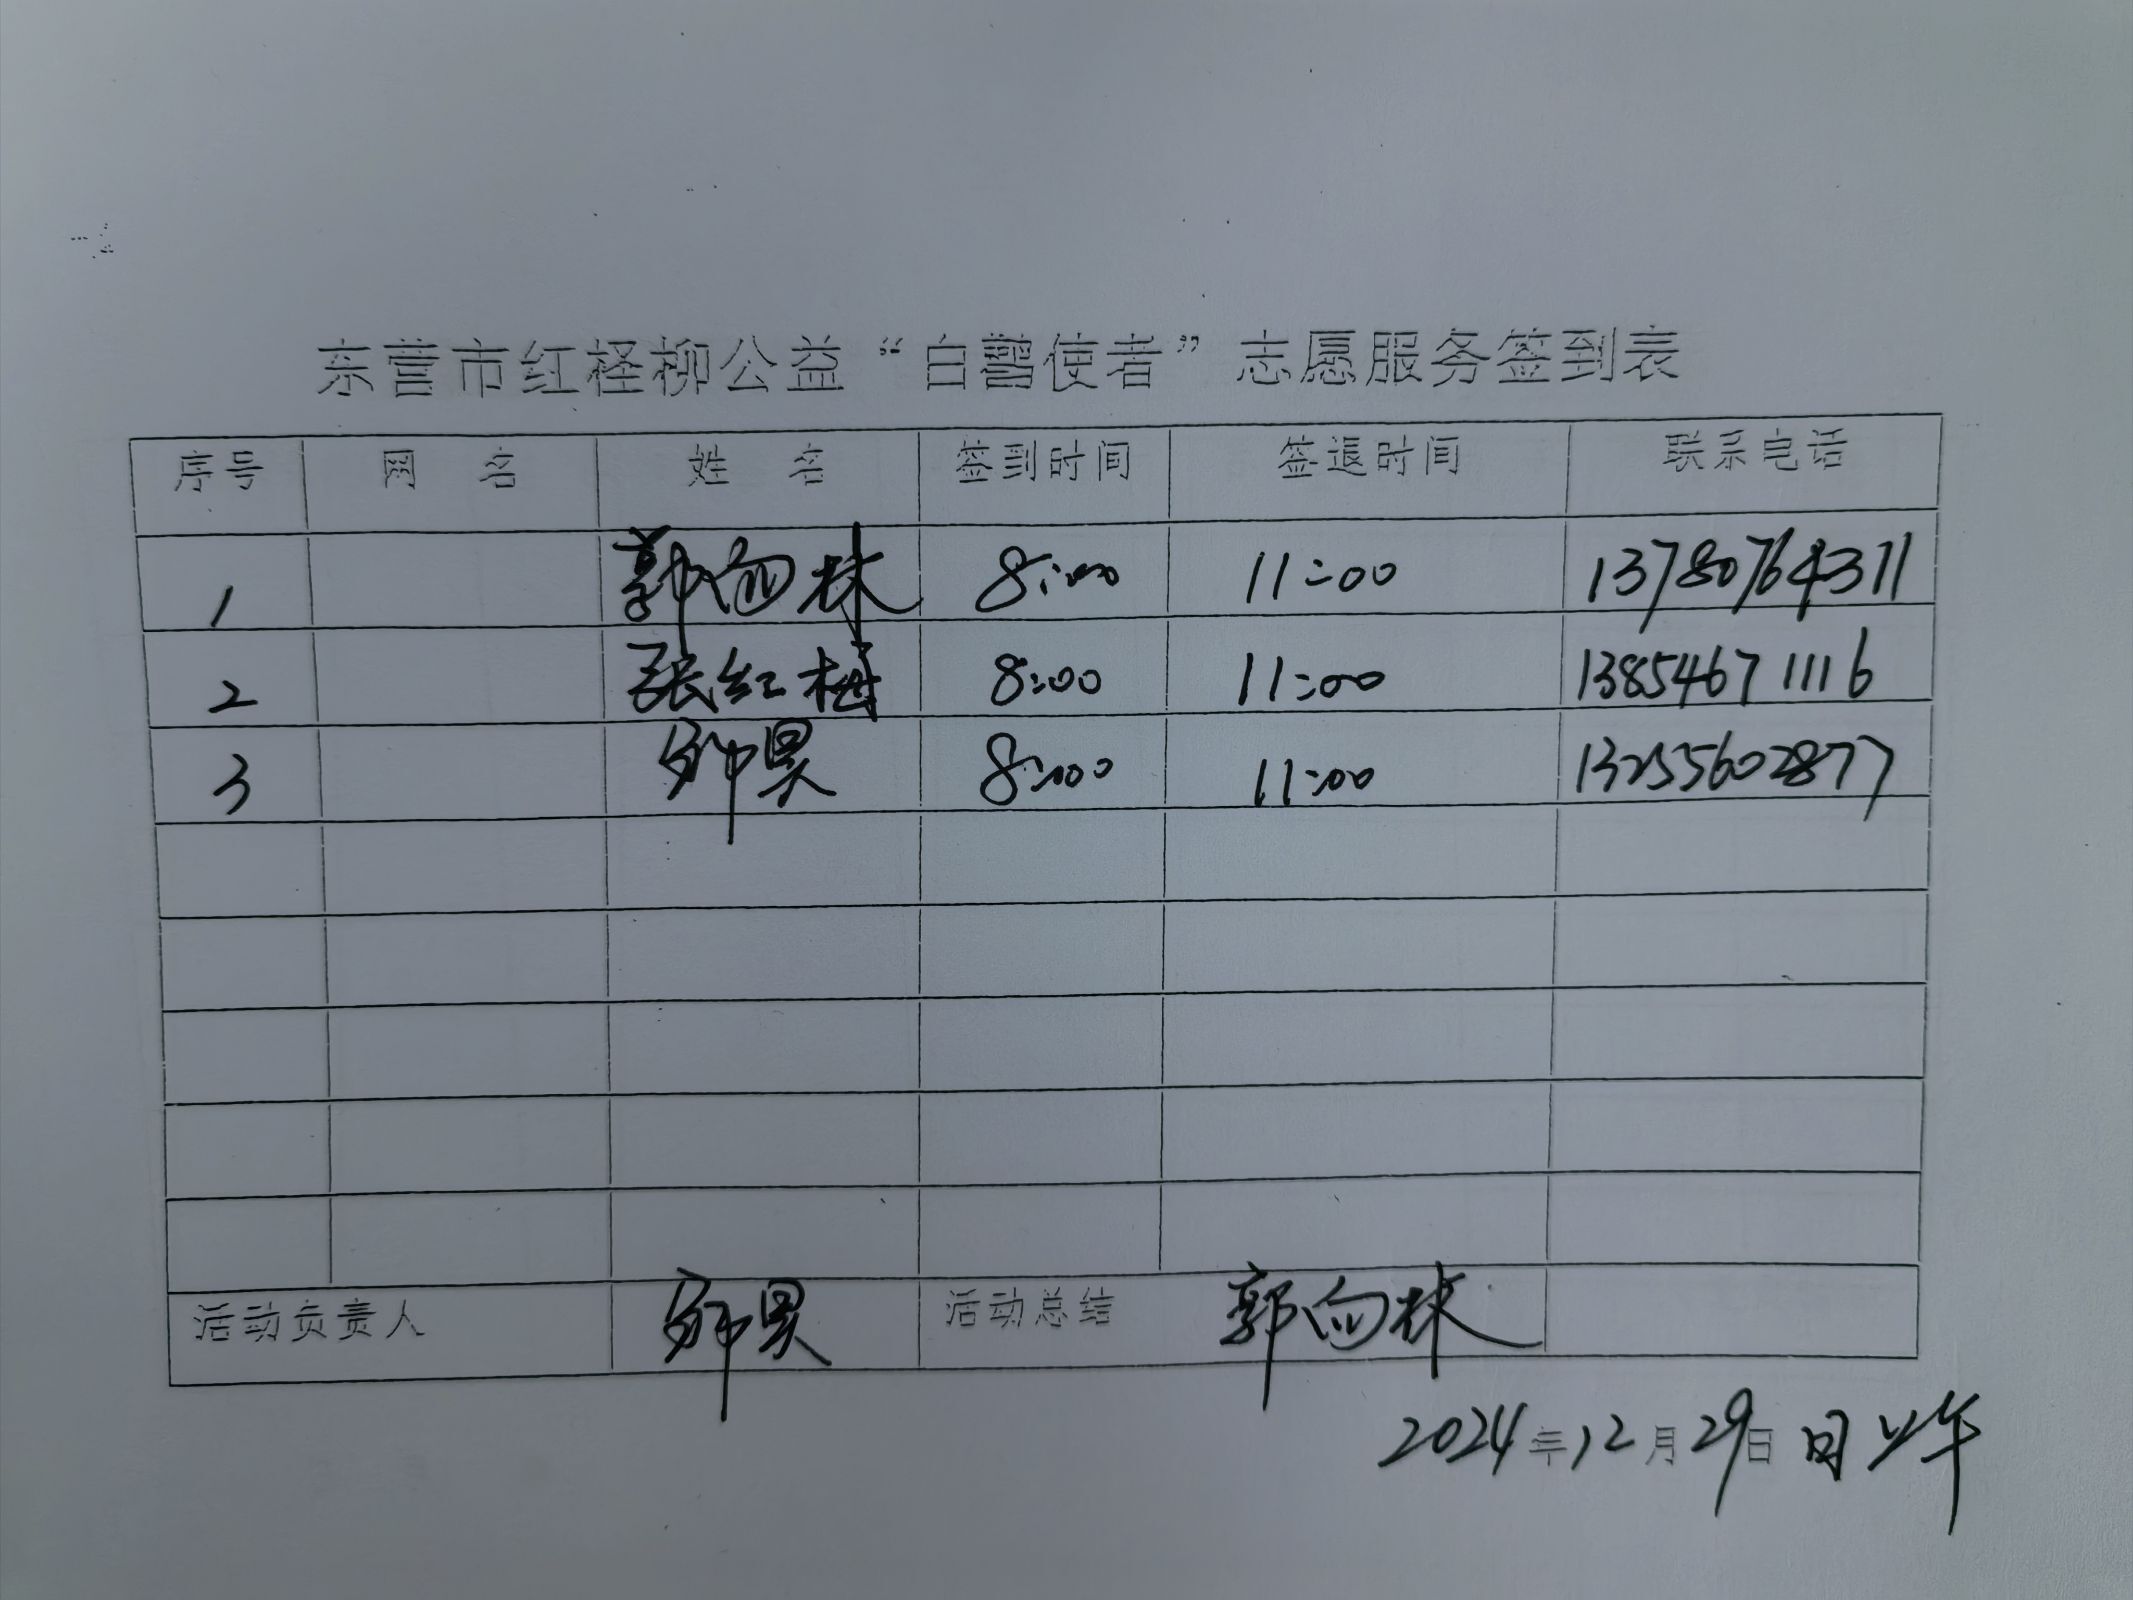 东营市红柽柳公益“白鹭使者”志愿服务签到表
序号 网 名 姓 名 签到时间 签退时间 联系电话
1 郭向林 8:00 11:00 13780764311
2 张红梅 8:00 11:00 13854671116
3 8:00 11:00 13255602877
活动负责人 活动总结 郭向林
2024年12月29日 日 上午